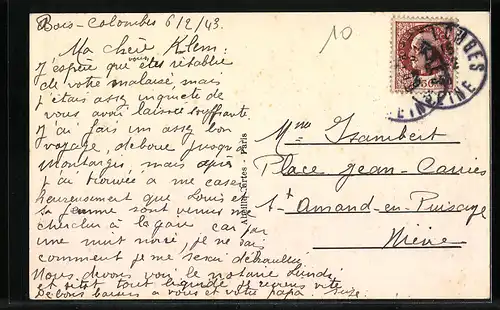 Bois-Colombes 6/2/43.
10
Ma chère Klem:
J'espère que vous êtes rétablie
de votre malaise, mais
j'étais assez inquiète de
vous avoir laissée souffrante.
J'ai fais un assez bon
voyage, debout jusque
Montargis, mais après
j'ai trouvée a me caser
heureusement que Louis et
sa femme sont venus me
chercher à la gare car par
une nuit noire, je ne sais
comment je me serai débrouillée
Nous devons voir le notaire Lundi
et sitôt tout liquidé je reviens vite
De bons baisers a vous et votre papa. Suze
Cartes - Paris
COLOMBES
SEINE
Mme Isambert
Place Jean-Carriès
St Amand-en-Puisaye
Nièvre